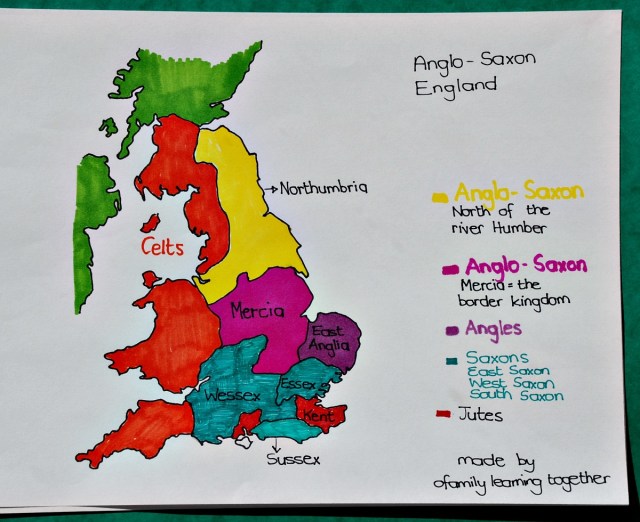 Anglo-Saxon
England
Northumbria
Celts
Mercia
East
Anglia
Wessex
Essex
Kent
Sussex
Anglo-Saxon
North of the
river Humber
Anglo-Saxon
Mercia = the
border kingdom
Angles
Saxons
East Saxon
West Saxon
South Saxon
Jutes
made by
ofamily learning together